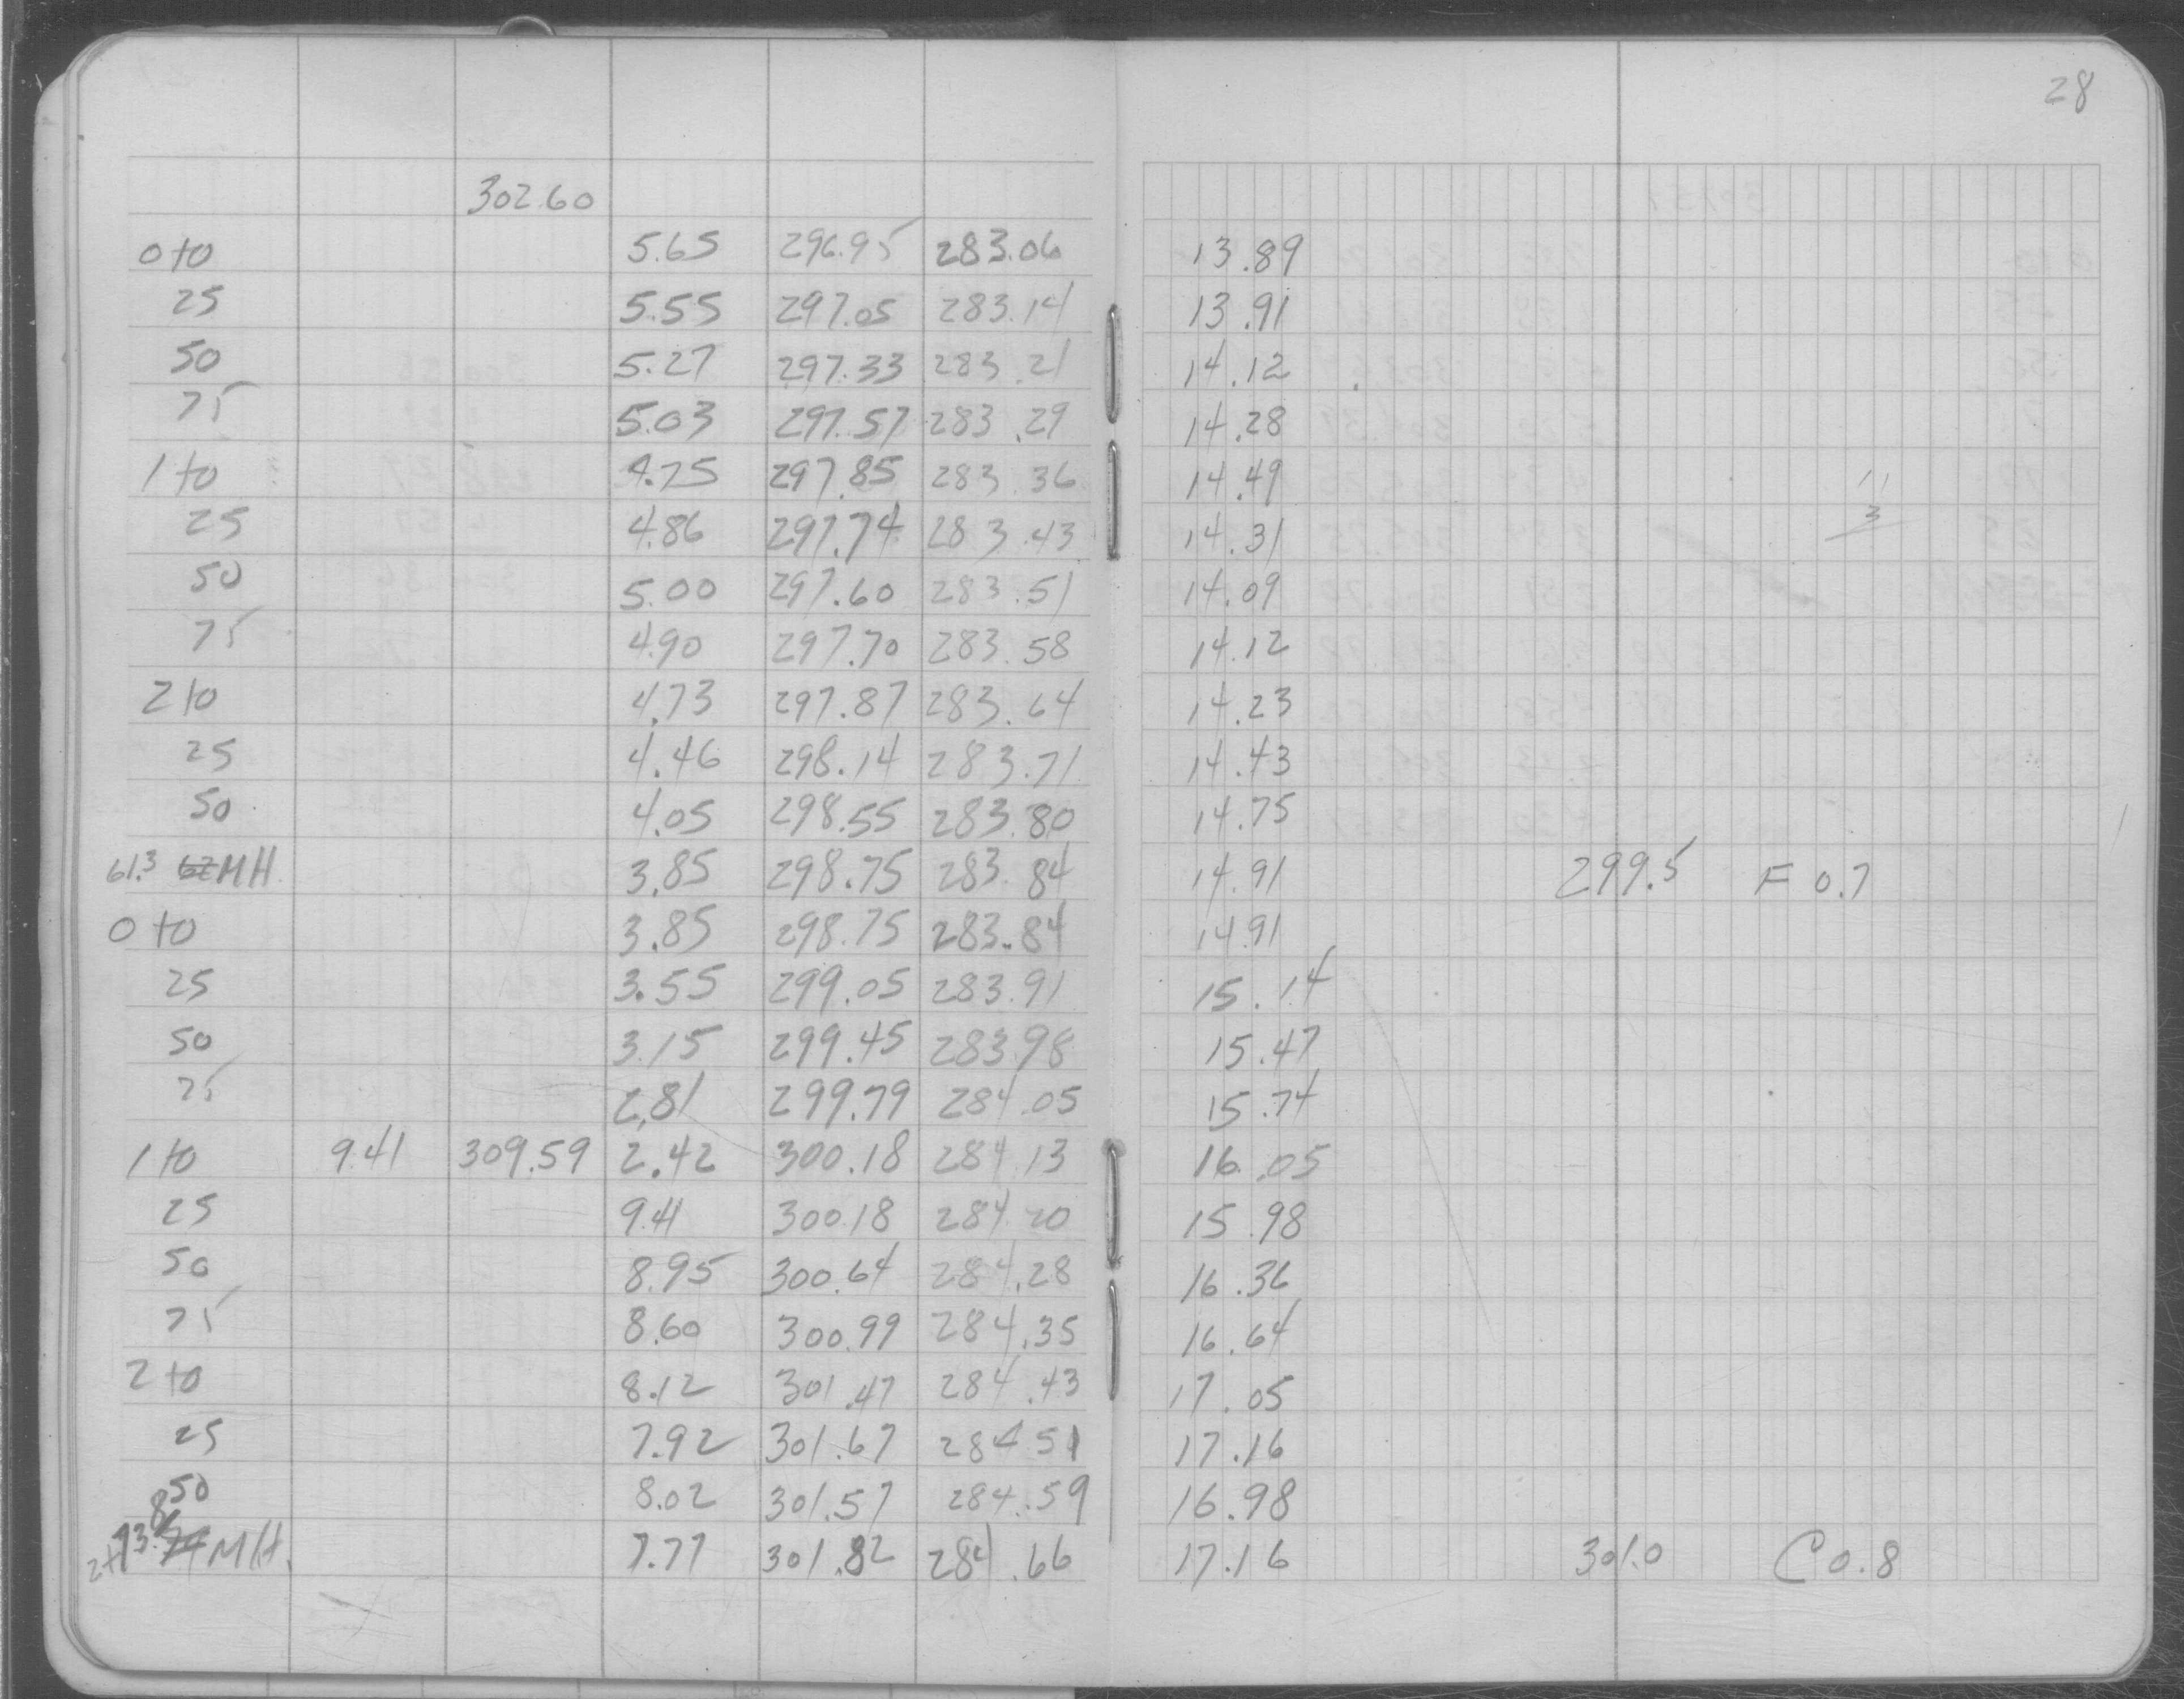 28
302.60
0+0 5.65 296.95 283.06 13.89
25 5.55 297.05 283.14 13.91
50 5.27 297.33 283.21 14.12
75 5.03 297.57 283.29 14.28
1+0 4.75 297.85 283.36 14.49
25 4.86 297.74 283.43 14.31
50 5.00 297.60 283.51 14.09
75 4.90 297.70 283.58 14.12
2+0 4.73 297.87 283.64 14.23
25 4.46 298.14 283.71 14.43
50 4.05 298.55 283.80 14.75
61.3 MH 3.85 298.75 283.84 14.91 299.5 F 0.7
0+0 3.85 298.75 283.84 14.91
25 3.55 299.05 283.91 15.14
50 3.15 299.45 283.98 15.47
75 2.81 299.79 284.05 15.74
1+0 9.41 309.59 2.42 300.18 284.13 16.05
25 9.41 300.18 284.20 15.98
50 8.95 300.64 284.28 16.36
75 8.60 300.99 284.35 16.64
2+0 8.12 301.47 284.43 17.05
25 7.92 301.67 284.51 17.16
50 8.02 301.57 284.59 16.98
MH. 7.77 301.82 284.66 17.16 301.0 C 0.8